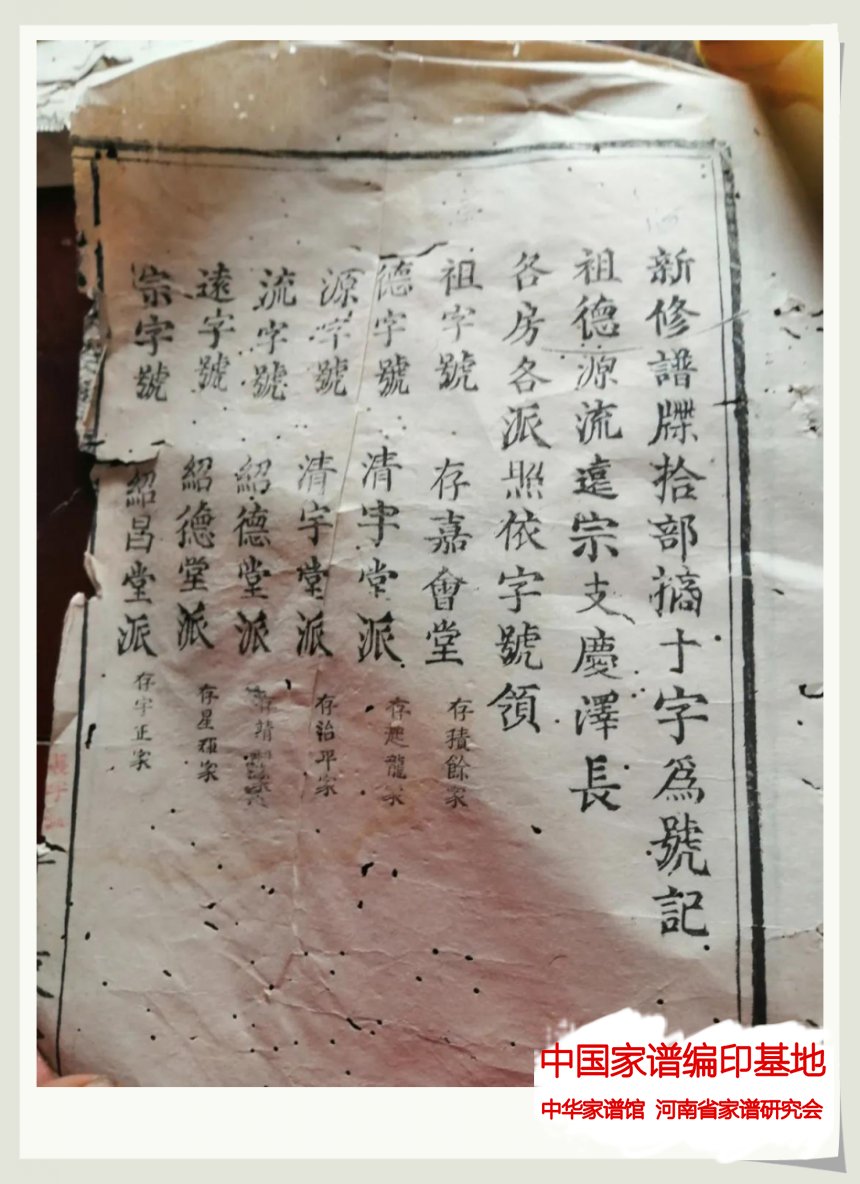 新修譜牒拾部摘十字為號記
祖德源流遠宗支慶澤長
各房各派照依字號領
祖字號 存嘉會堂 存積餘家
德字號 清宇堂派 存 龍家
源字號 清宇堂派 存治平家
流字號 紹德堂派 靖
遠字號 紹德堂派 存星 家
宗字號 紹昌堂派 存宇正家
中国家谱编印基地
中华家谱馆 河南省家谱研究会